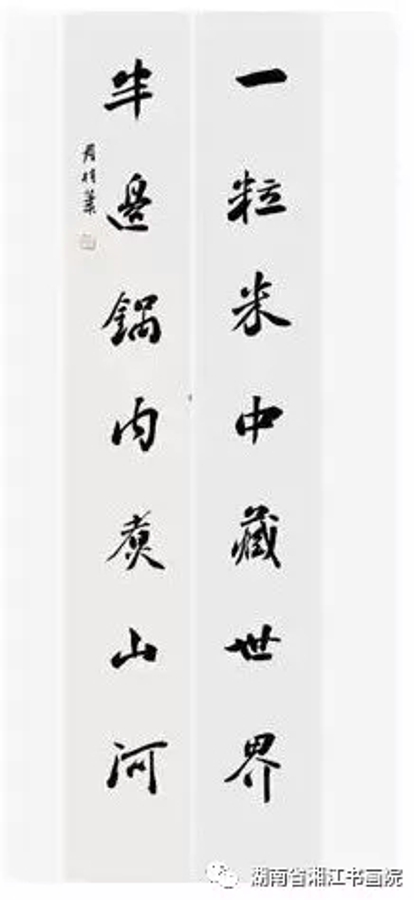 一粒米中藏世界
半邊鍋内煑山河
湖南省湘江书画院